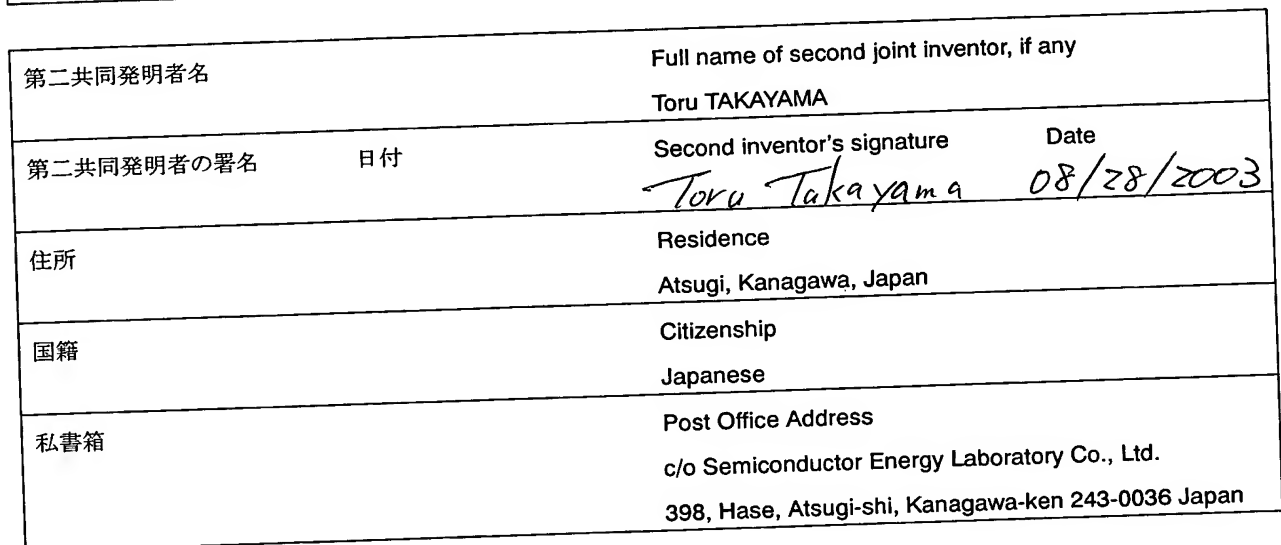 第二共同発明者名
Full name of second joint inventor, if any
Toru TAKAYAMA
第二共同発明者の署名 日付
Second inventor's signature Date
Toru Takayama 08/28/2003
住所
Residence
Atsugi, Kanagawa, Japan
国籍
Citizenship
Japanese
私書箱
Post Office Address
c/o Semiconductor Energy Laboratory Co., Ltd.
398, Hase, Atsugi-shi, Kanagawa-ken 243-0036 Japan